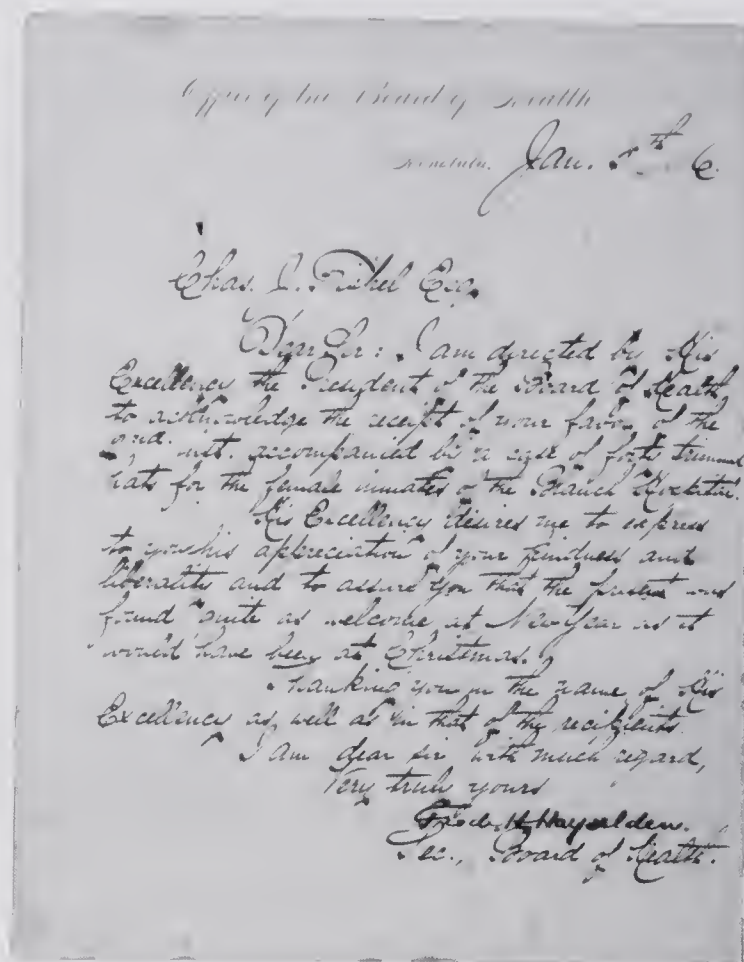 Office of the Board of Health
Honolulu. Jan. 5th 6
Chas. J. Fishel Esq.
Dear Sir: I am directed by His
Excellency the President of the Board of Health
to acknowledge the receipt of your favor of the
2nd. inst. accompanied by a case of forty trimmed
hats for the female inmates of the Branch Hospital.
His Excellency desires me to express
to you his appreciation of your kindness and
liberality and to assure you that the present was
found quite as welcome at New Year as it
would have been at Christmas.
Thanking you in the name of His
Excellency as well as in that of the recipients
I am dear sir with much regard,
Very truly yours
Fred. H. Hayselden.
Sec., Board of Health.